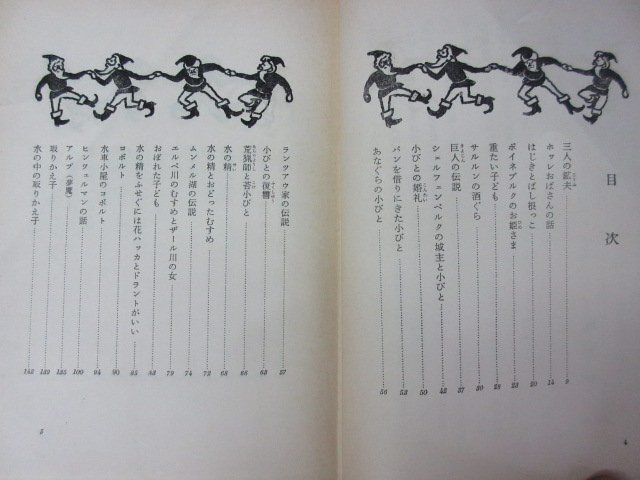 目次
三人の鉱夫 9
ホッレおばさんの話 14
はじきとばし根っこ 20
ボイネブルクのお姫さま 23
重たい子ども 28
ザルルンの酒ぐら 30
巨人の伝説 37
シェルフェンベルクの城主と小びと 42
小びとの婚礼 50
パンを借りにきた小びと 53
あなぐらの小びと 56
4
ランツァウ家の伝説 57
小びとの復讐 63
荒猟師と苔小びと 66
水の精 68
水の精とおどったむすめ 72
ムンメル湖の伝説 74
エルベ川のむすめとザール川の女 79
おぼれた子ども 83
水の精をふせぐには花ハッカとドラントがいい 85
コボルト 90
水車小屋のコボルト 94
ヒンツェルマンの話 100
アルプ(夢魔) 135
取りかえ子 139
水の中の取りかえ子 142
5